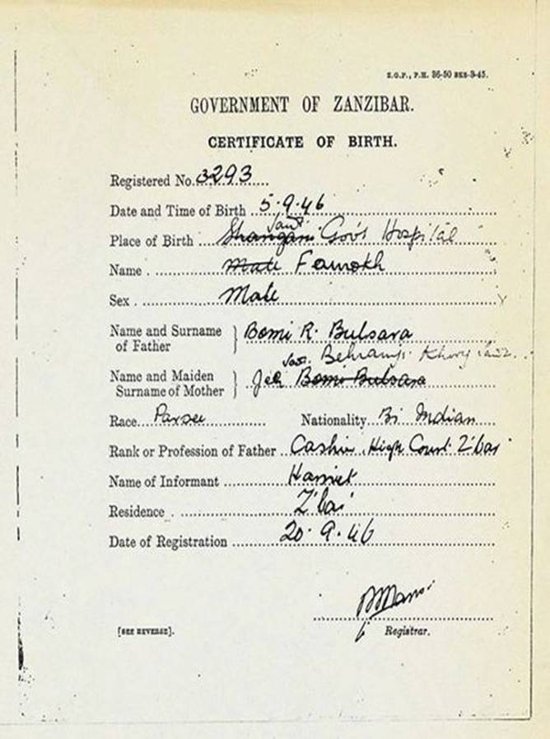 Z.G.P., P.H. 36-50 BKS-3-45.
GOVERNMENT OF ZANZIBAR.
CERTIFICATE OF BIRTH.
Registered No. 3293
Date and Time of Birth 5.9.46
Place of Birth Shangani Govt Hospital
Name Male Farrokh
Sex Male
Name and Surname of Father Bomi R. Bulsara
Name and Maiden Surname of Mother Jer Bomi Bulsara
Race Parsee Nationality Bi Indian
Rank or Profession of Father Cashier, High Court Z'bar
Name of Informant
Residence Z'bar
Date of Registration 20.9.46
[SEE REVERSE].
Registrar.